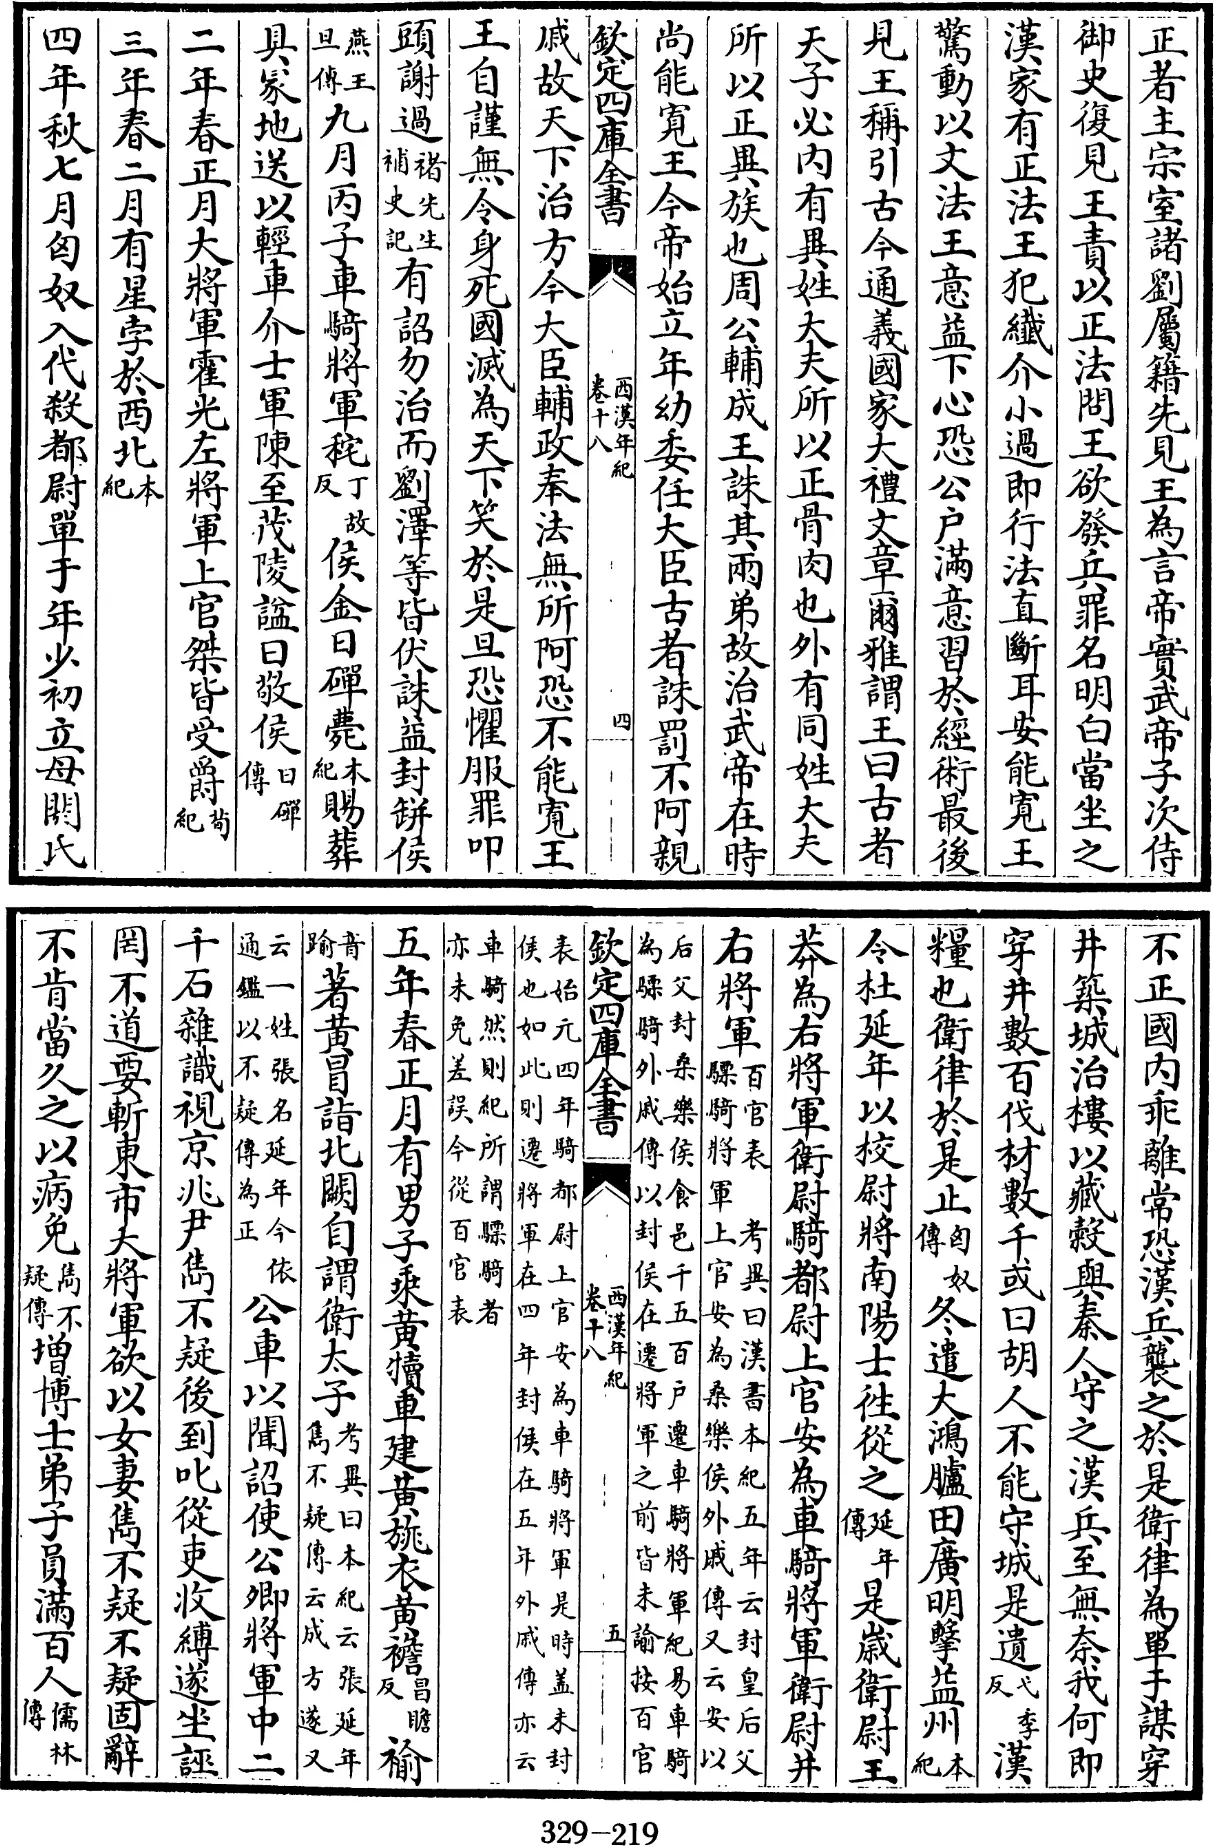 正者主宗室諸劉屬籍先見王為言帝實武帝子次侍
御史復見王責以正法問王欲發兵罪名明白當坐之
漢家有正法王犯纖介小過即行法直斷耳安能寛王
驚動以文法王意益下心恐公户滿意習於經術最後
見王稱引古今通義國家大禮文章爾雅謂王曰古者
天子必内有異姓大夫所以正骨肉也外有同姓大夫
所以正異族也周公輔成王誅其兩弟故治武帝在時
尚能寛王今帝始立年幼委任大臣古者誅罰不阿親
欽定四庫全書 西漢年紀卷十八 四
戚故天下治方今大臣輔政奉法無所阿恐不能寛王
王自謹無令身死國滅為天下笑於是旦恐懼服罪叩
頭謝過褚先生補史記有詔勿治而劉澤等皆伏誅益封缾侯
燕王旦傳九月丙子車騎將軍秺丁故反侯金日磾薨本紀賜葬
具冢地送以輕車介士軍陳至茂陵諡曰敬侯日磾傳
二年春正月大將軍霍光左將軍上官桀皆受爵荀紀
三年春二月有星孛於西北本紀
四年秋七月匈奴入代殺都尉單于年少初立母閼氏
不正國内乖離常恐漢兵襲之於是衛律為單于謀穿
井築城治樓以藏穀與秦人守之漢兵至無奈我何即
穿井數百伐材數千或曰胡人不能守城是遺弋季反漢
糧也衛律於是止匈奴傳冬遣大鴻臚田廣明擊益州本紀
令杜延年以校尉將南陽士往從之延年傳是歲衛尉王
莽為右將軍衛尉騎都尉上官安為車騎將軍衛尉并
右將軍百官表 考異曰漢書本紀五年云封皇后父驃騎將軍上官安為桑樂侯外戚傳又云安以
后父封桑樂侯食邑千五百户遷車騎將軍紀易車騎為驃騎外戚傳以封侯在遷將軍之前皆未諭按百官
表始元四年騎都尉上官安為車騎將軍是時盖未封侯也如此則遷將軍在四年封侯在五年外戚傳亦云
車騎然則紀所謂驃騎者亦未免差誤今從百官表
欽定四庫全書 西漢年紀卷十八 五
五年春正月有男子乘黄犢車建黄旐衣黄襜昌瞻反褕
音踰著黄冒詣北闕自謂衛太子考異曰本紀云張延年雋不疑傳云成方遂又
云一姓張名延年今依通鑑以不疑傳為正公車以聞詔使公卿將軍中二
千石雜識視京兆尹雋不疑後到叱從吏收縛遂坐誣
罔不道要斬東市大將軍欲以女妻雋不疑不疑固辭
不肯當久之以病免雋不疑傳增博士弟子員滿百人儒林傳
329-219